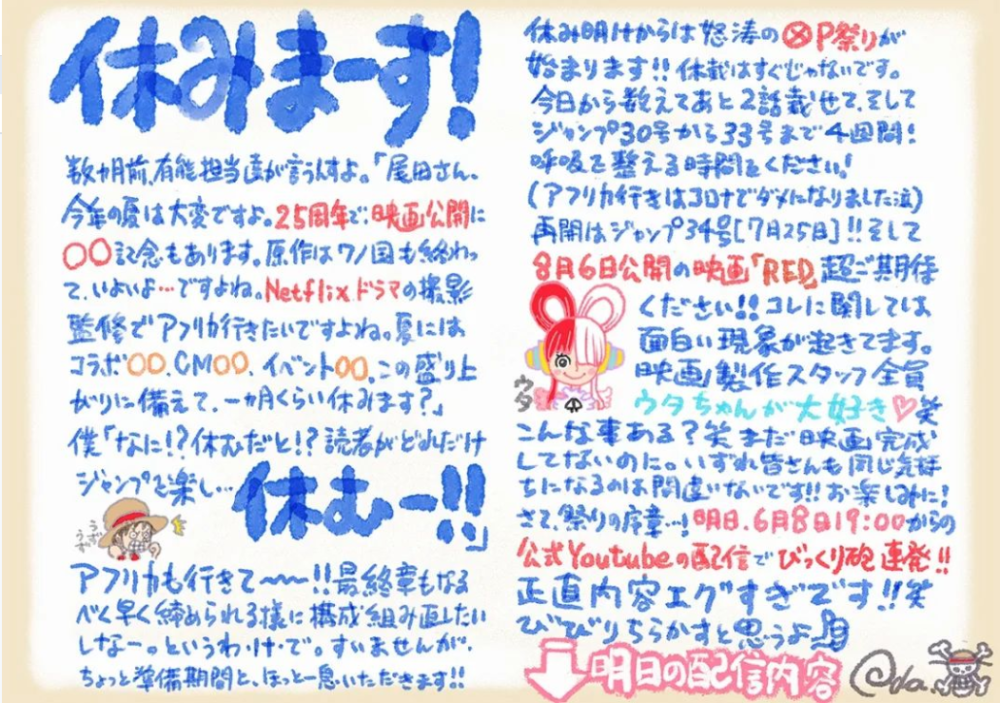 休みまーす!
数ヶ月前、有能担当達が言うんすよ。「尾田さん、
今年の夏は大変ですよ。25周年で、映画公開に
〇〇記念もあります。原作はワノ国も終わっ
て、いよいよ…ですよね。Netflixドラマの撮影
監修でアフリカ行きたいですよね。夏には
コラボ〇〇、CM〇〇、イベント〇〇。この盛り上
がりに備えて、一ヵ月くらい休みます?」
僕「なに!?休むだと!?読者がどれだけ
ジャンプを楽し…
休むー!!」
うず
うず
アフリカも行きて〜〜!!最終章もなる
べく早く締められる様に構成組み直したい
しなー。というわ・け・で。すいませんが、
ちょっと準備期間と、ほっと一息いただきます!!
休み明けからは怒涛の ⓧP祭りが
始まります!!休載はすぐじゃないです。
今日から数えてあと2話載せて、そして
ジャンプ30号から33号まで4週間!
呼吸を整える時間をください!
(アフリカ行きはコロナでダメになりました泣)
再開はジャンプ34号[7月25日]!!そして
8月6日公開の映画「RED」超ご期待
ください!!コレに関しては
面白い現象が起きてます。
映画製作スタッフ全員
ウタちゃんが大好き♡笑
ウタ
こんな事ある?笑 まだ映画完成
してないのに。いずれ皆さんも同じ気持
ちになるのは間違いないです!!お楽しみに!
さて、祭りの序章…!明日、6月8日19:00からの
公式Youtubeの配信でびっくり砲連発!!
正直内容エグすぎです!!笑
びびりちらかすと思うよ
明日の配信内容
Oda.